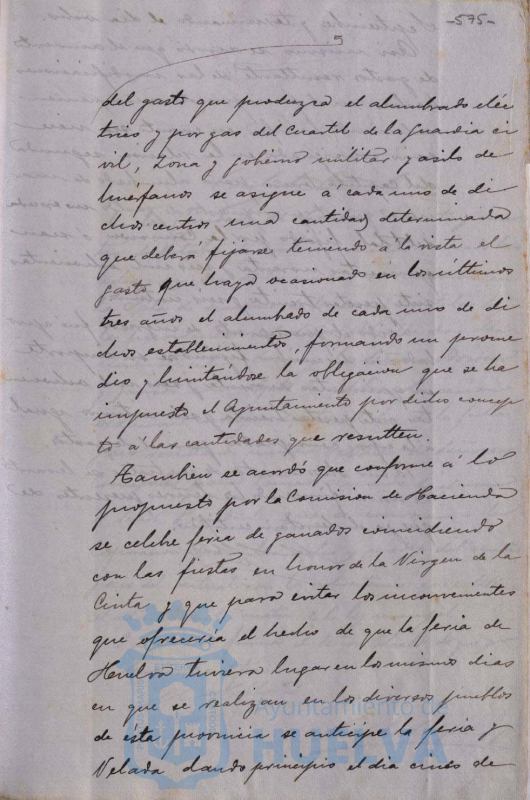 -575-
5
del gasto que produzca el alumbrado eléc
trico y por gas del Cuartel de la Guardia ci
vil, Zona y Gobierno militar y asilo de
huérfanos se asigne á cada uno de di
chos centros una cantidad determinada
que deberá fijarse teniendo á la vista el
gasto que haya ocasionado en los últimos
tres años el alumbado de cada uno de di
chos establecimientos, formando un prome
dio y limitándose la obligacion que se ha
impuesto el Ayuntamiento por dicho concep
to á las cantidades que resulten.
Tambien se acordó que conforme á lo
propuesto por la Comision de Hacienda
se celebre feria de ganados coincidiendo
con las fiestas en honor de la Virgen de la
Cinta y que para evitar los inconvenientes
que ofreceria el hecho de que la feria de
Huelva tuviera lugar en los mismos dias
en que se realizan en los diversos pueblos
de ésta provincia se anticipe la feria y
Velada dando principio el dia cinco de
Ayuntamiento de
HUELVA